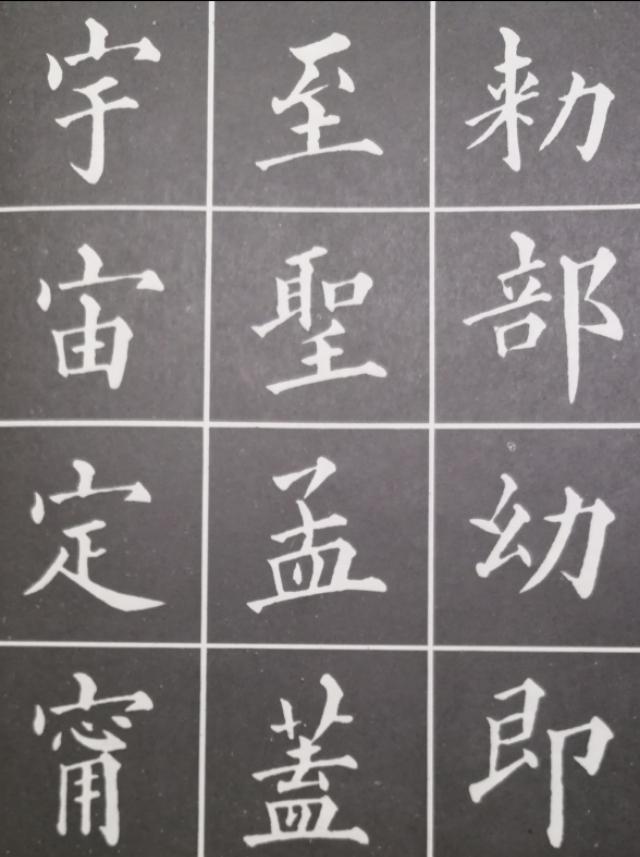 勑部幼即
至聖孟蓋
宇宙定甯